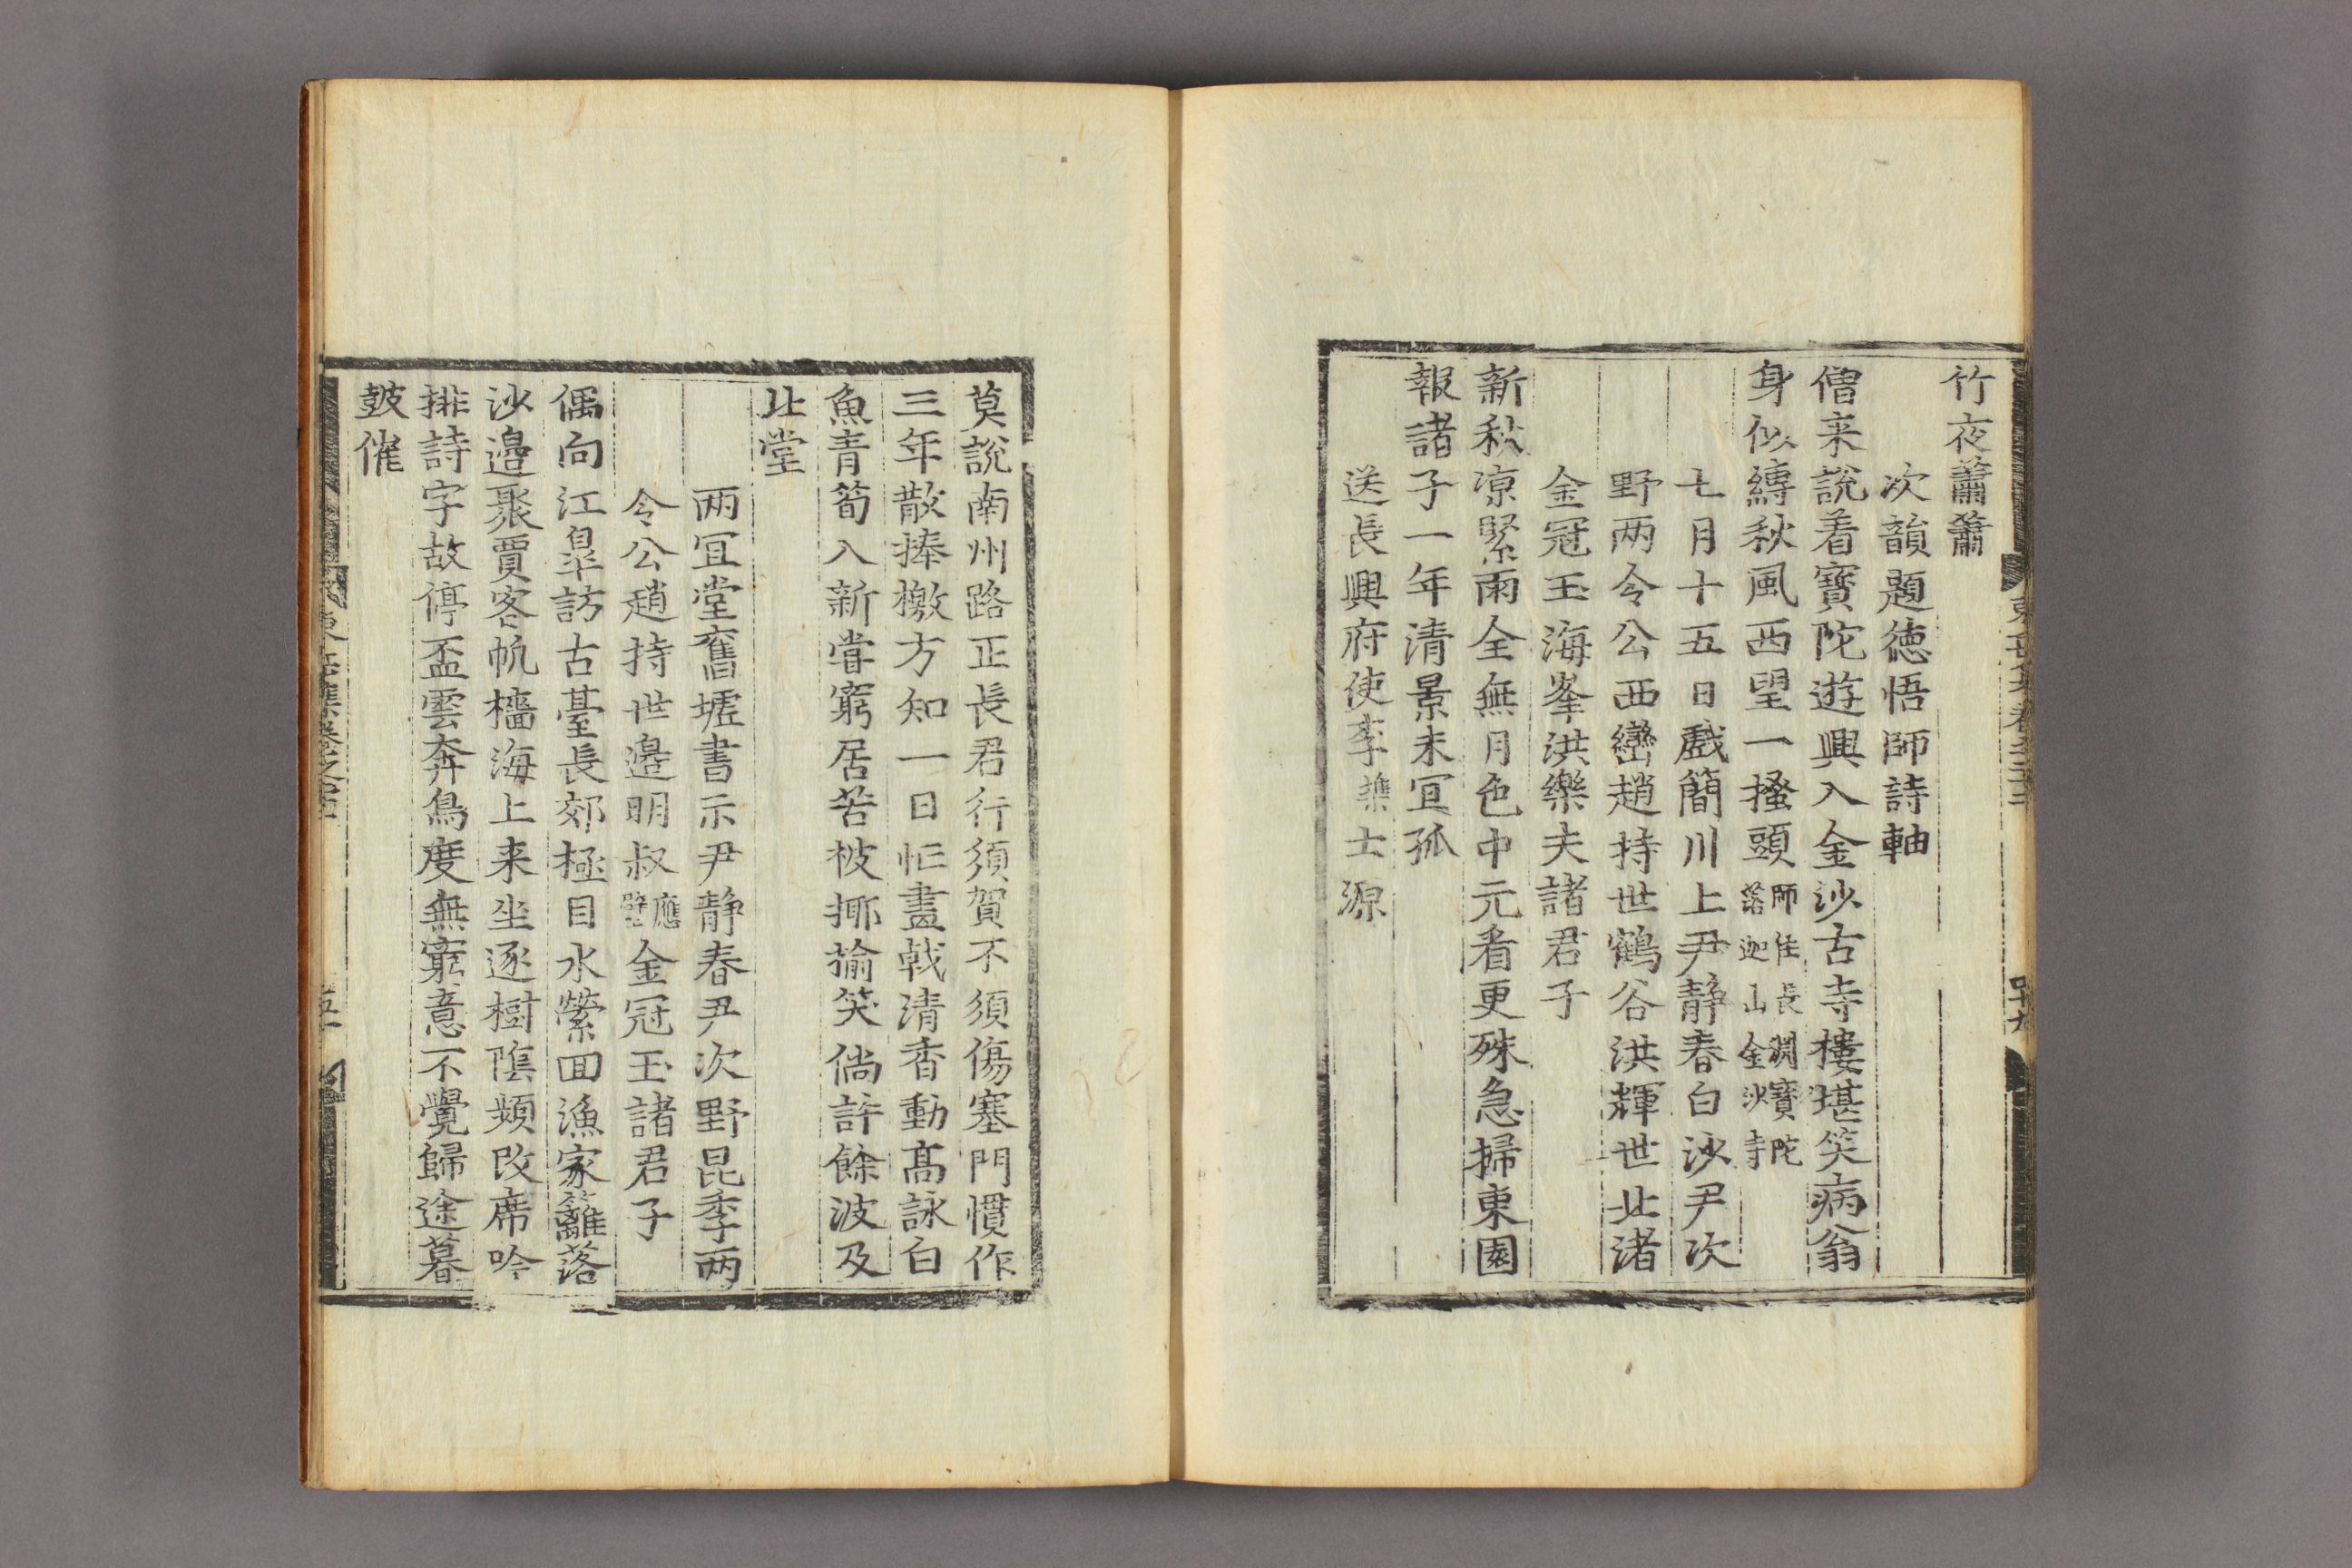 竹夜蕭蕭
次韻題徳悟師詩軸
僧来說着寶陀遊興入金沙古寺樓堪笑病翁
身似縳秋風西望一搔頭師住長淵寶陀落迦山金沙寺
七月十五日戲簡川上尹靜春白沙尹次
野两令公西巒趙持世鶴谷洪輝世北渚
金冠玉海峯洪樂夫諸君子
新秋凉緊雨全無月色中元看更殊急掃東園
報諸子一年清景未冝孤
送長興府使李士源
莫說南州路正長君行須賀不須傷塞門慣作
三年散捧檄方知一日忙畫戟清香動髙詠白
魚青筍入新甞窮居苦被揶揄笑倘許餘波及
北堂
两冝堂舊墟書示尹靜春尹次野昆季两
令公趙持世邉明叔應壁金冠玉諸君子
偶向江皐訪古臺長郊極目水縈囬漁家籬落
沙邉聚賈客帆檣海上来坐逐樹隂頻改席吟
排詩字故停盃雲奔鳥度無窮意不覺歸途暮
鼓催